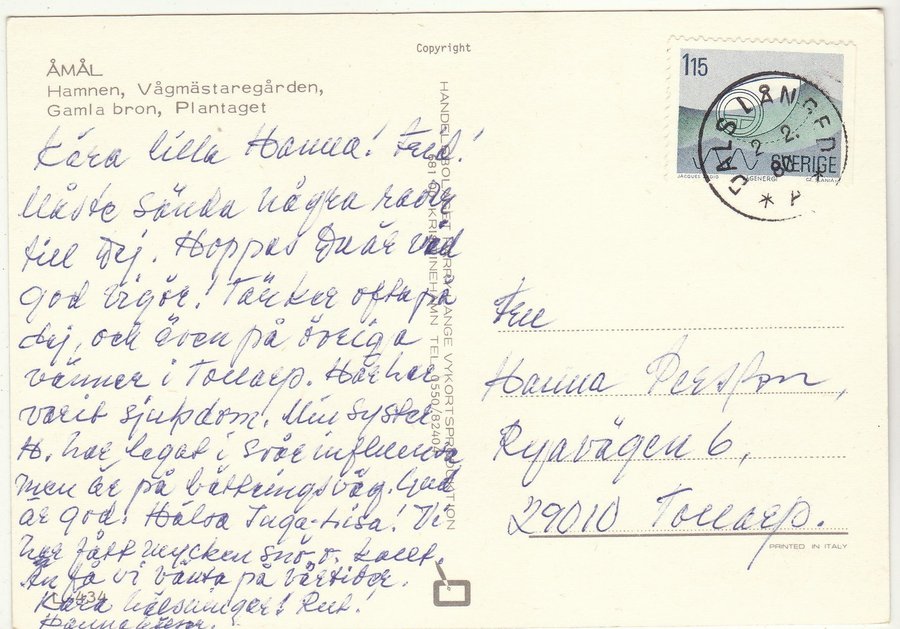 Copyright
ÅMÅL
Hamnen, Vågmästaregården,
Gamla bron, Plantaget
Kära lilla Hanna! Frid!
Måste sända några rader
till Dej. Hoppas Du är vid
god vigör! Tänker ofta på
dej, och även på övriga
vänner i Tollarp. Här har
varit sjukdom. Min syster
H. har legat i svår influensa
men är på bättringsväg. Gud
är god! Hälsa Inga-Lisa! Vi
har fått mycken snö o. kallt.
Än få vi vänta på vårtider.
Kära hälsningar! Rut!
L 434
VYKORTSPRODUKTION
TEL. 0550/8240
115
SVERIGE
DALS LÅNGED
2 2.
80
Fru
Hanna Persson,
Ryavägen 6,
29010 Tollarp.
PRINTED IN ITALY